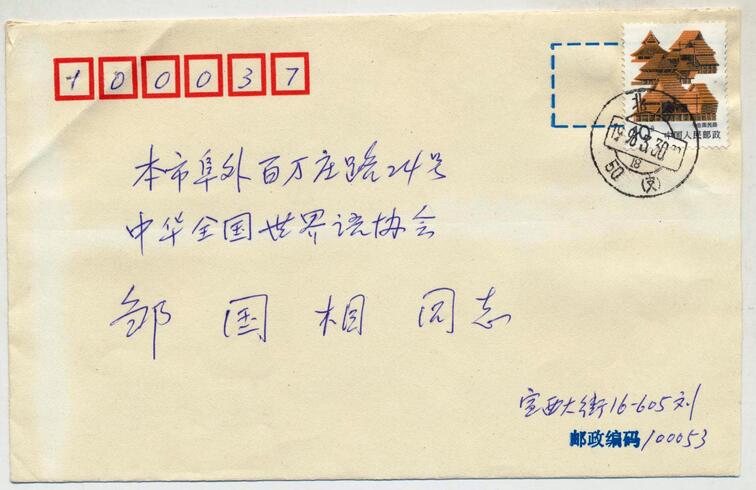 100037
中国人民邮政
北
1990.3.30
18
50 (支)
本市阜外百万庄路24号
中华全国世界语协会
邹国相同志
宣西大街16-605刘
邮政编码100053